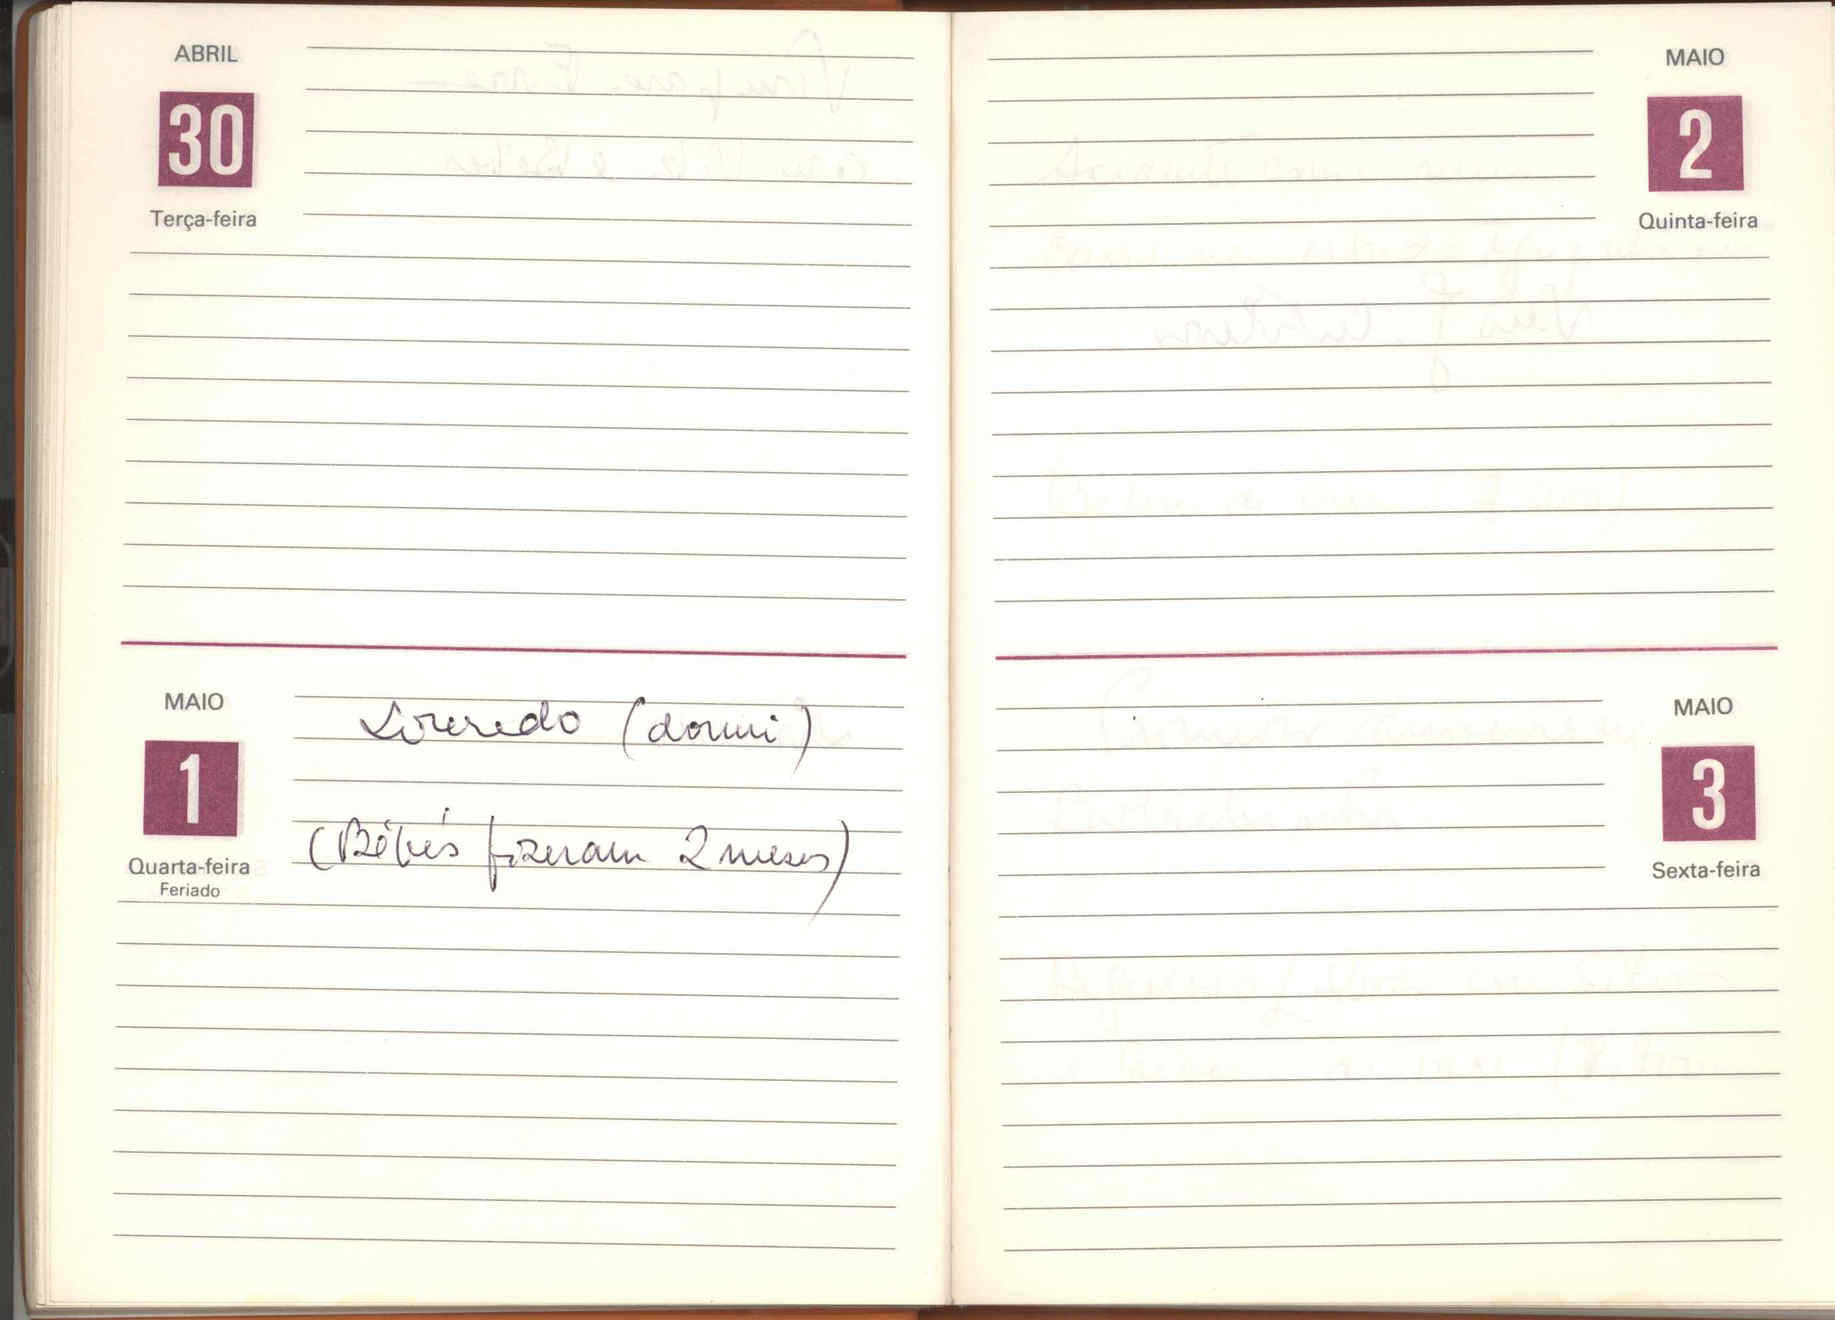 ABRIL
30
Terça-feira
MAIO
1
Quarta-feira
Feriado
(dormi)
(Bébés fizeram 2 meses)
MAIO
2
Quinta-feira
MAIO
3
Sexta-feira